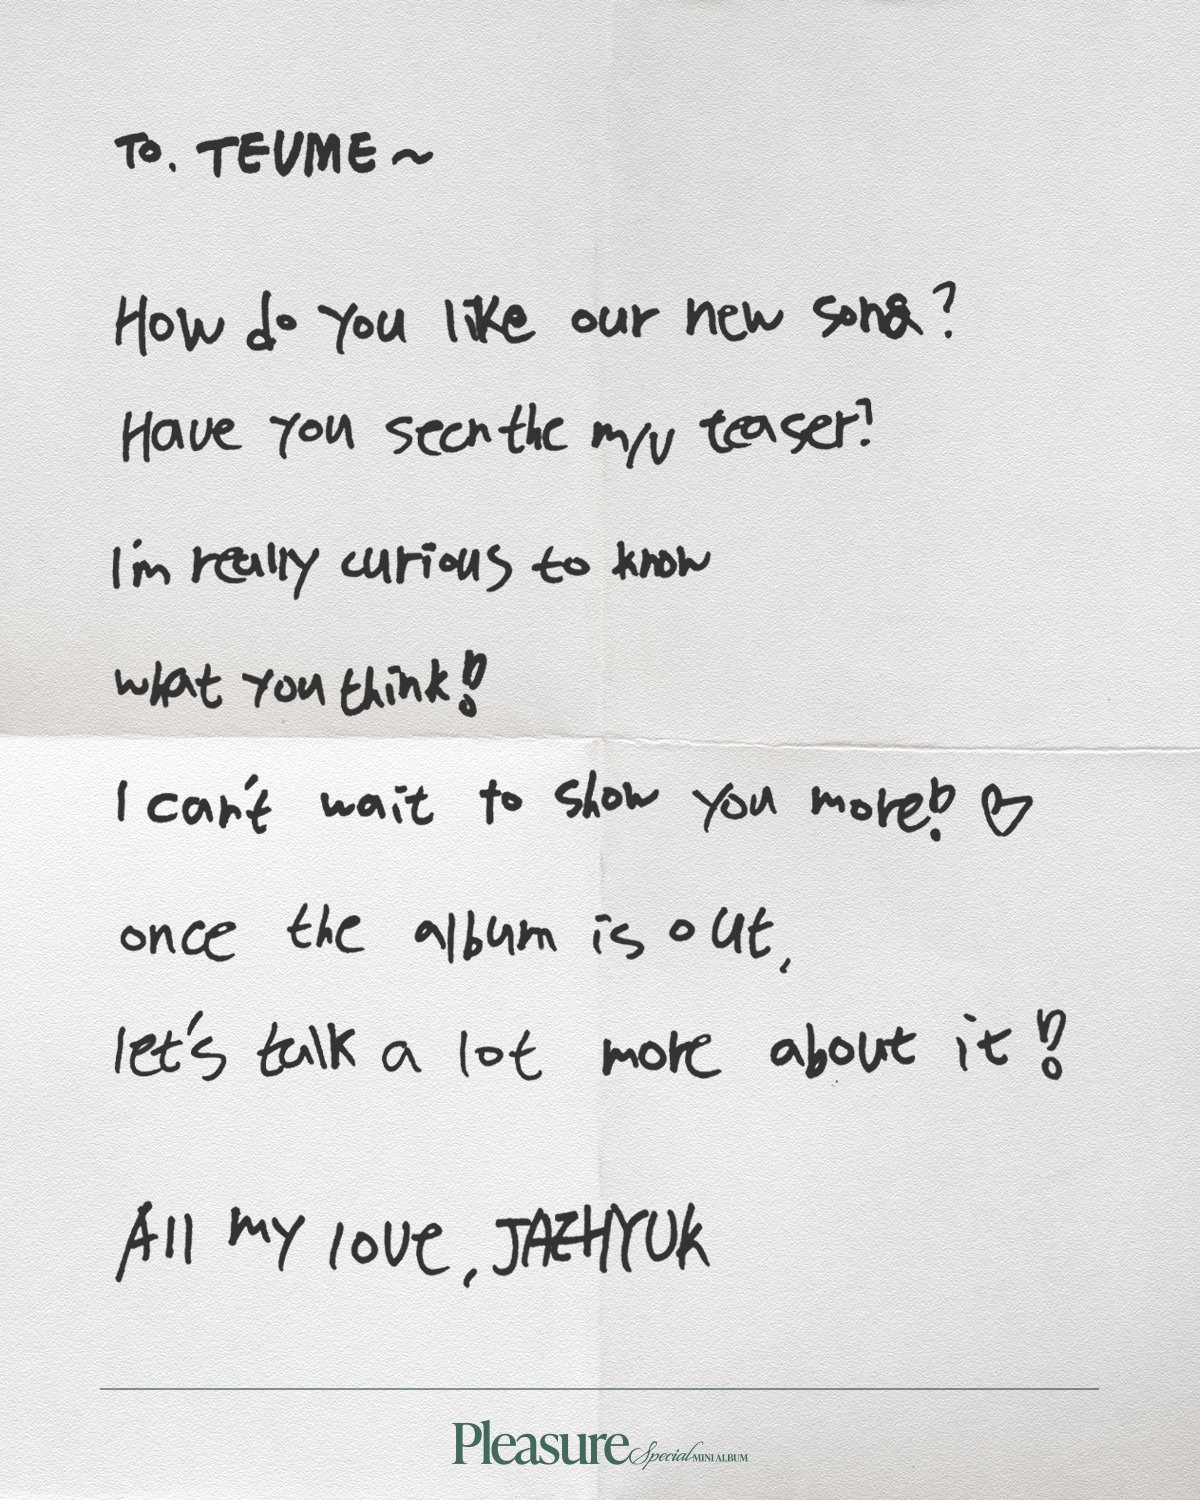 To. TEUME~
How do you like our new song?
Have you seen the m/v teaser?
I'm really curious to know
what you think!
I can't wait to show you more! ♡
once the album is out,
let's talk a lot more about it!
All my love, JAEHYUK
Pleasure Special MINI ALBUM